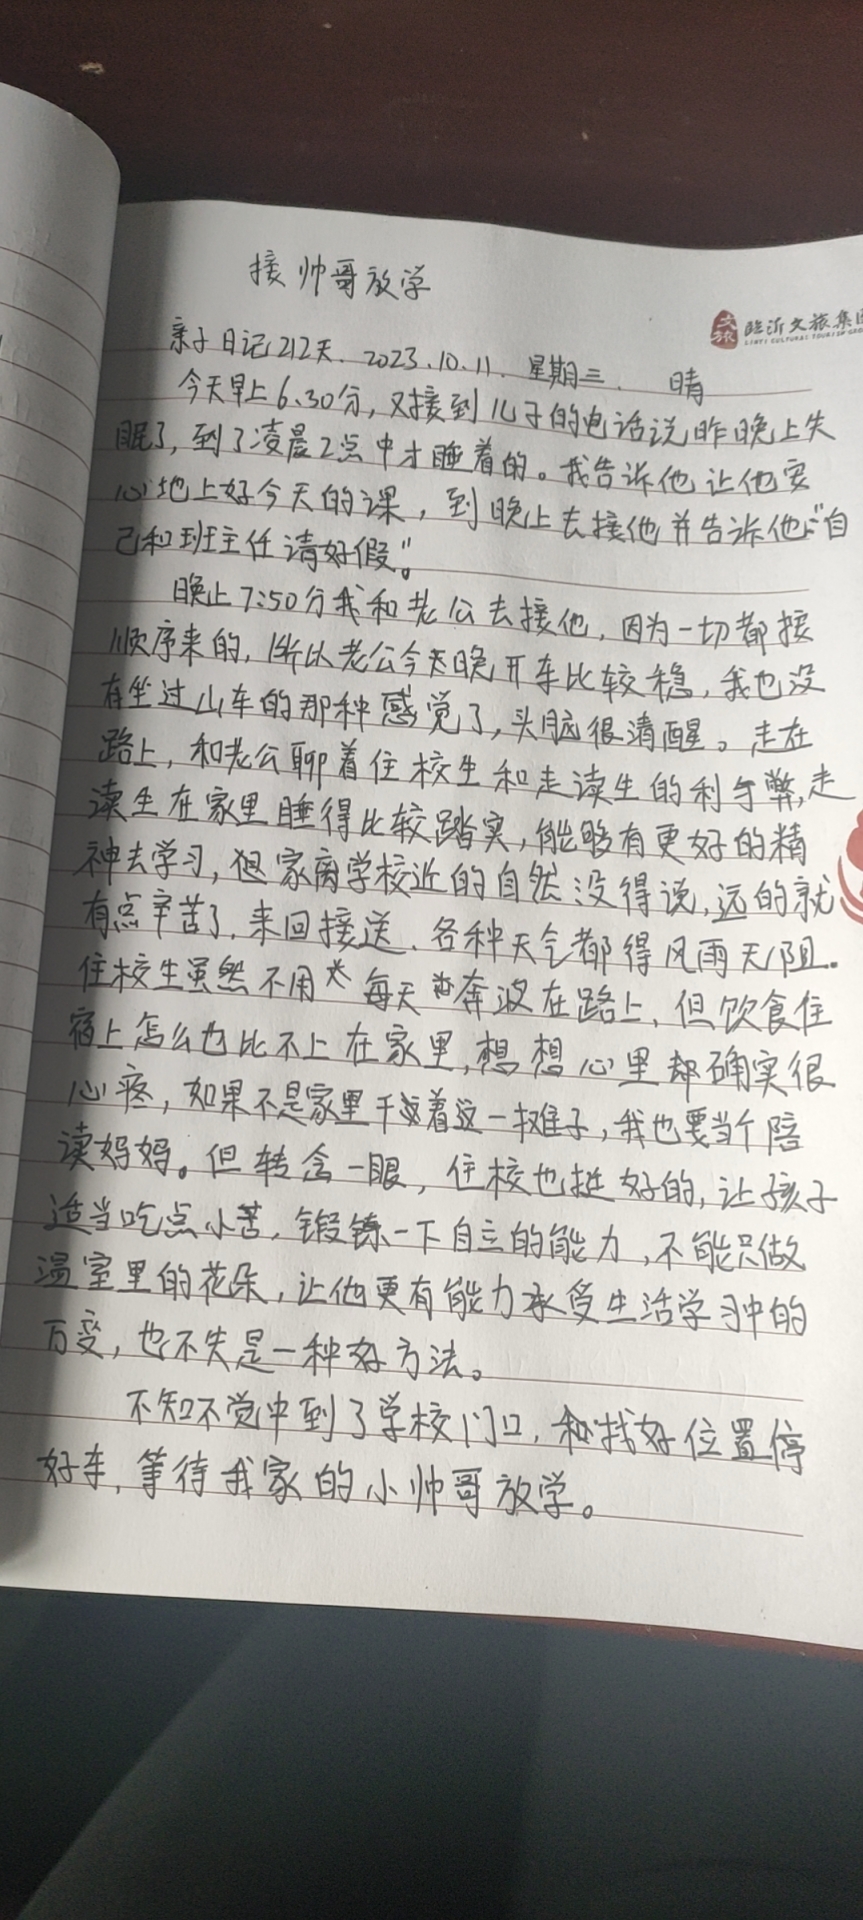 接帅哥放学
文旅 临沂文旅集团
LINYI CULTURAL TOURISM GRO
亲子日记212天. 2023.10.11. 星期三. 晴
今天早上6.30分,又接到儿子的电话说昨晚上失
眠了,到了凌晨2点中才睡着的。我告诉他让他安
心地上好今天的课,到晚上去接他并告诉他:"自
己和班主任请好假"。
晚上7:50分我和老公去接他,因为一切都按
顺序来的,所以老公今天晚开车比较稳,我也没
有坐过山车的那种感觉了,头脑很清醒。走在
路上,和老公聊着住校生和走读生的利与弊,走
读生在家里睡得比较踏实,能够有更好的精
神去学习,但家离学校近的自然没得说,远的就
有点辛苦了,来回接送.各种天气都得风雨无阻.
住校生虽然不用每天奔波在路上,但饮食住
宿上怎么也比不上在家里,想想心里却确实很
心疼,如果不是家里干着这一摊子,我也要当个陪
读妈妈。但转念一眼,住校也挺好的,让孩子
适当吃点小苦,锻铼一下自立的能力,不能只做
温室里的花朵,让他更有能力承受生活学习中的
万变,也不失是一种好方法。
不知不觉中到了学校门口,找好位置停
好车,等待我家的小帅哥放学。